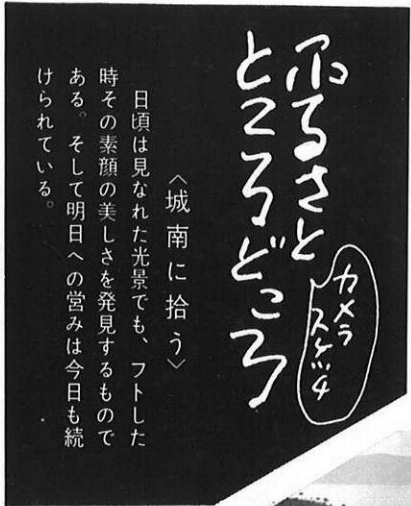 ふるさと
ところどころ
カメラ
スケッチ
〈城南に拾う〉
日頃は見なれた光景でも、フトした
時その素顔の美しさを発見するもので
ある。そして明日への営みは今日も続
けられている。